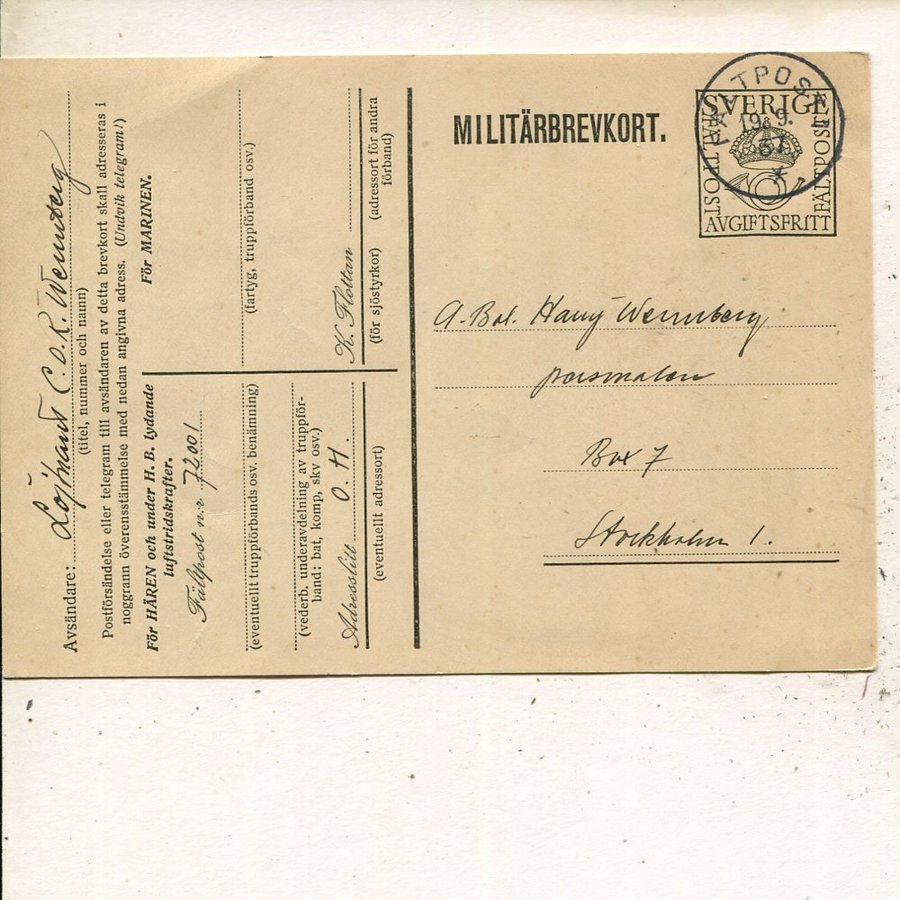 Avsändare: Löjtnant C.O.R. Wennberg
(titel, nummer och namn)
Postförsändelse eller telegram till avsändaren av detta brevkort skall adresseras i
noggrann överensstämmelse med nedan angivna adress. (Undvik telegram!)
För HÄREN och under H. B. lydande
luftstridskrafter.
Fältpost n:r 72001
(eventuellt truppförbands osv. benämning)
(vederb. underavdelning av truppför-
band: bat, komp, skv osv.)
Adresslitt O. H.
(eventuellt adressort)
För MARINEN.
(fartyg, truppförband osv.)
K. Flottan
(för sjöstyrkor)
(adressort för andra
förband)
MILITÄRBREVKORT.
FÄLTPOST
19. 9.
37
SVERIGE
FÄLTPOST
FÄLTPOST
AVGIFTSFRITT
Harry Wennberg
personalen
Box 7
Stockholm 1.